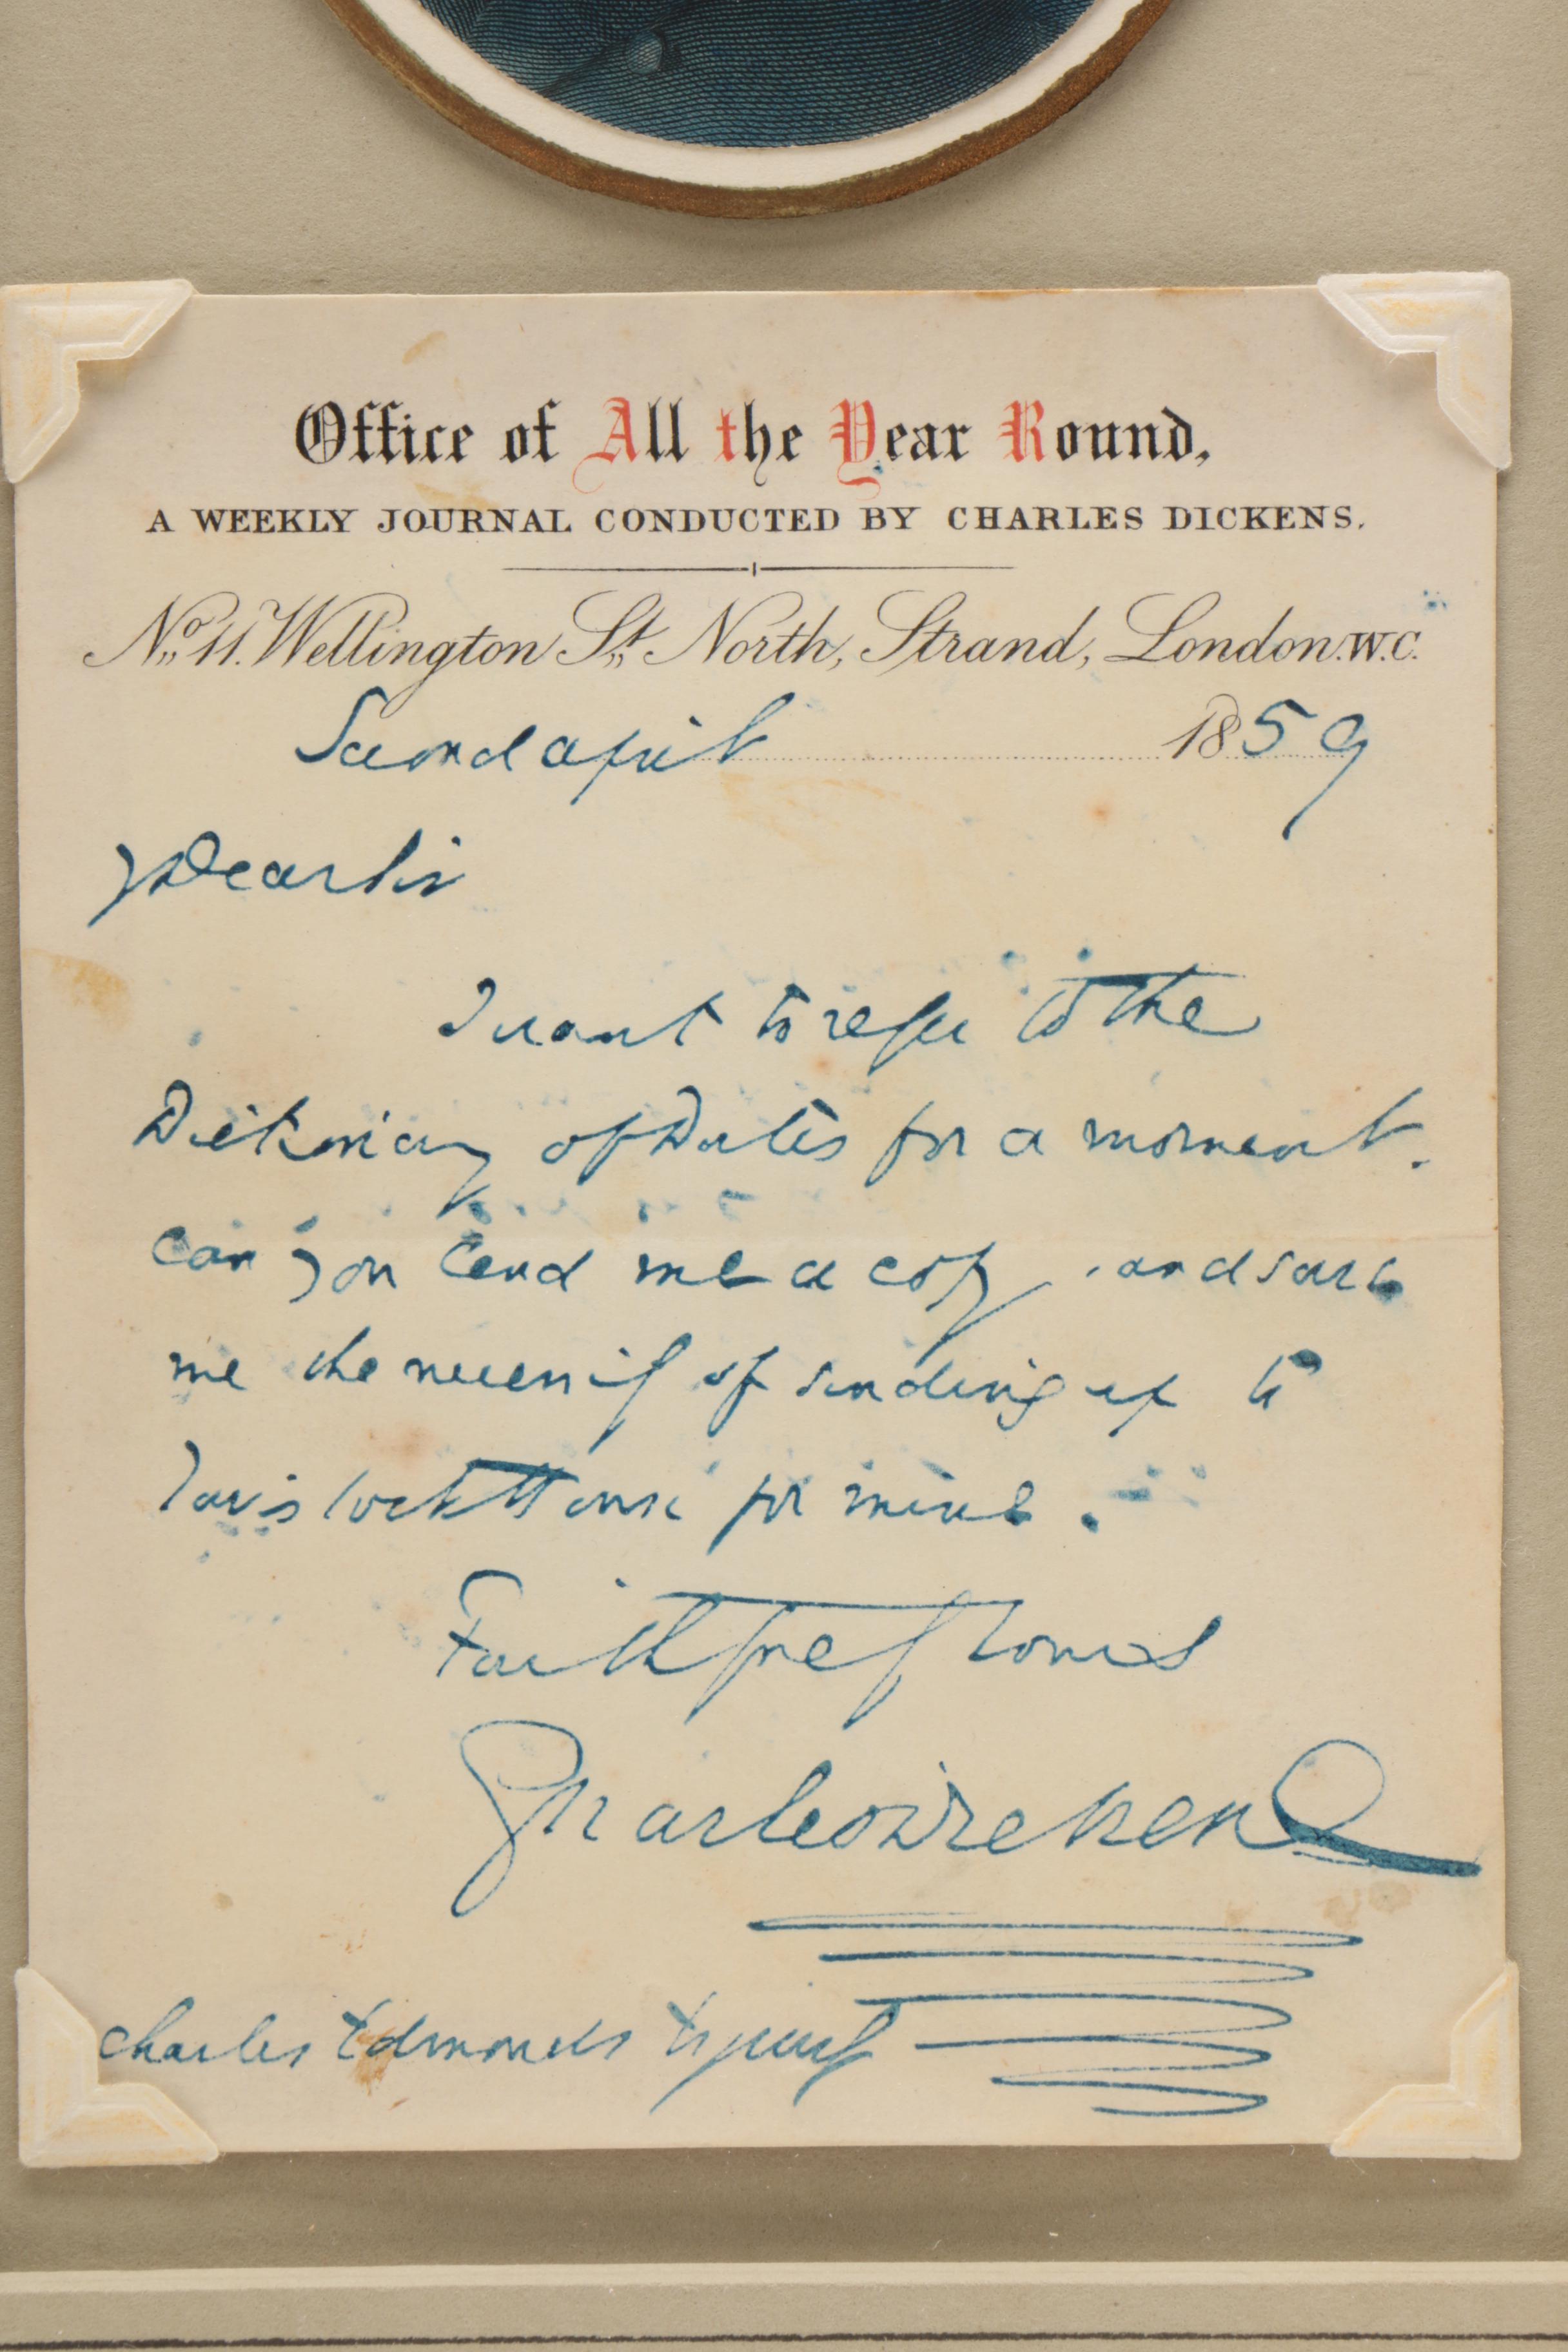 Office of All the Year Round,
A WEEKLY JOURNAL CONDUCTED BY CHARLES DICKENS.
No. 11. Wellington St. North, Strand, London. W.C.
Second April 1859
My Dear Sir
I want to refer to the
Dictionary of Dates for a moment.
Can you lend me a copy, and save
me the necessity of sending up to
Tavistock House for mine.
Faithfully Yours
Charles Dickens
Charles Edmonds Esquire